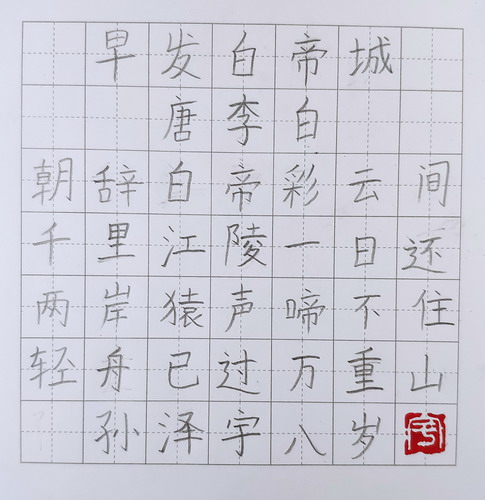 早发白帝城
唐李白
朝辞白帝彩云间
千里江陵一日还
两岸猿声啼不住
轻舟已过万重山
孙泽宇八岁